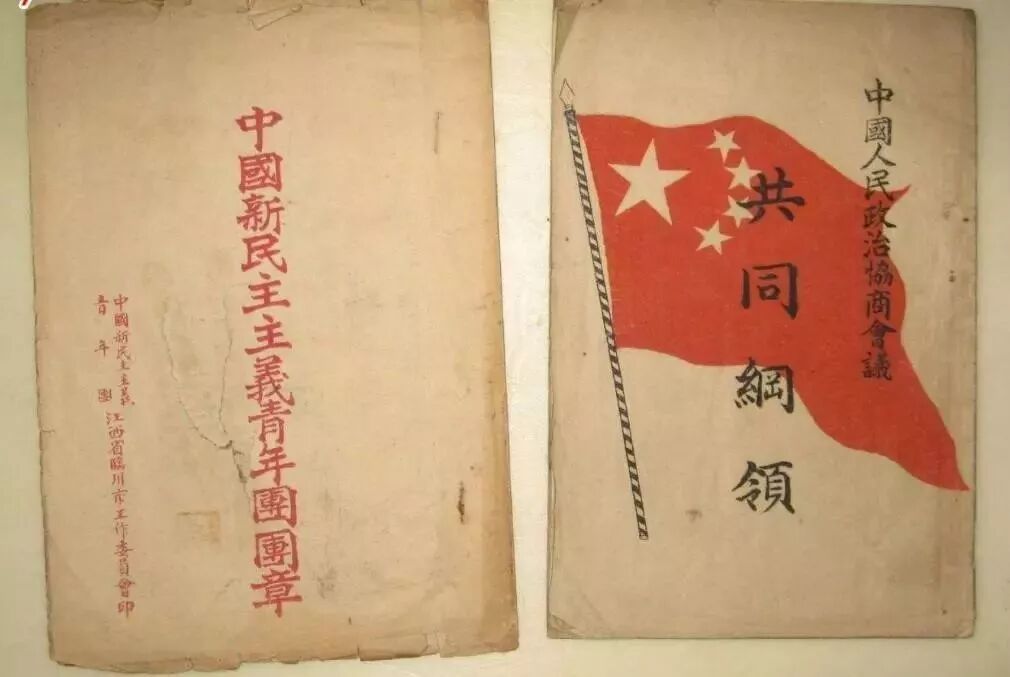 中國新民主主義青年團團章
中國新民主主義
青年團
江西省臨川市工作委員會印
中國人民政治協商會議
共同綱領